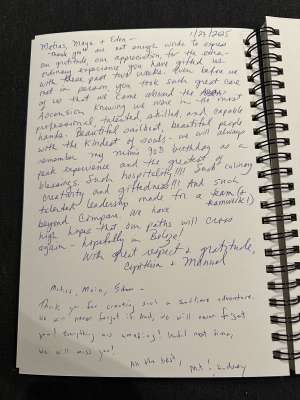 1/23/2025
Motus, Maya & Eden –
Thank you are not enough words to express
our gratitude, our appreciation, for the extra-
culinary experience you have gifted us
with these past two weeks. Even before we
met in person, you took such great care
of us that we came aboard the
Ascension knowing we were in the most
professional, talented, skilled, and capable
hands. Beautiful sailboat, beautiful people
with the kindest of souls – we will always
remember my 93rd birthday as a
peak experience and the greatest of
blessings. Such hospitality!!!! Such culinary
creativity and giftedness!!! And such
talented leadership made for a team (&
teamwork!)
beyond compare. We have
high hope that our paths will cross
again – hopefully in Belize!
With great respect & gratitude,
Cynthia & Manuel
Thank you for creating such a adventure.
We will never forget it. And, we will never forget
you! Everything was amazing! Until next time,
we will miss you!
All the best,
Lindsay